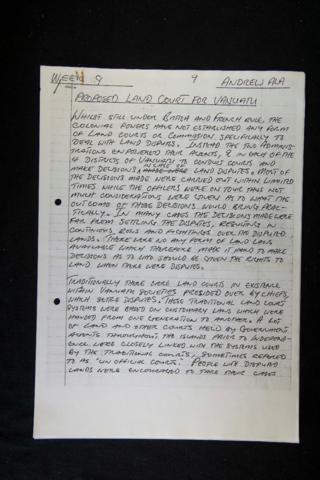 WEEK 9 9 ANDREW ALA
PROPOSED LAND COURT FOR VANUATU
WHILST STILL UNDER BRITISH AND FRENCH RULE, THE
COLONIAL POWERS HAVE NOT ESTABLISHED ANY FORM
OF LAND COURTS OR COMMISSION SPECIFICALLY TO
DEAL WITH LAND DISPUTES. INSTEAD THE TWO ADMINIS-
TRATIONS EMPOWERED THEIR AGENTS, IN EACH OF THE
4 DISTRICTS OF VANUATU TO CONDUCT COURTS AND
MAKE DECISIONS IN CASE OF LAND DISPUTES. MOST OF
THE DECISIONS MADE WERE CARRIED OUT WITHIN LIMITED
TIMES WHILE THE OFFICERS WERE ON TOUR THUS NOT
MUCH CONSIDERATIONS WERE GIVEN AS TO WHAT THE
OUTCOME OF THOSE DECISIONS WOULD BRING PRAC-
TICALLY. IN MANY CASES THE DECISIONS MADE WERE
FAR FROM SETTLING THE DISPUTES, RESULTING IN
CONTINUOUS ROWS AND FIGHTINGS OVER THE DISPUTED
LANDS. THERE WERE NO ANY FORM OF LAND LAWS
AVAILABLE WHICH THEREFORE MADE IT HARD TO MAKE
DECISIONS AS TO WHO SHOULD BE GIVEN THE RIGHTS TO
LAND WHEN THERE WERE DISPUTES.
TRADITIONALLY THERE WERE LAND COURTS IN EXISTENCE
WITHIN VANUATU SOCIETIES PRESIDED OVER BY CHIEFS,
WHICH SETTLE DISPUTES. THESE TRADITIONAL LAND COURT
SYSTEMS WERE BASED ON CUSTOMARY LAWS WHICH WERE
HANDED FROM ONE GENERATION TO ANOTHER. A LOT
OF LAND AND OTHER COURTS HELD BY GOVERNMENT
AGENTS THROUGHOUT THE ISLANDS PRIOR TO INDEPEND-
ENCE WERE CLOSELY LINKED WITH THE SYSTEMS USED
BY THE TRADITIONAL COURTS, SOMETIMES REFERRED
TO AS 'UN OFFICIAL COURTS'. PEOPLE WITH DISPUTED
LANDS WERE ENCOURAGED TO TAKE THEIR CASES